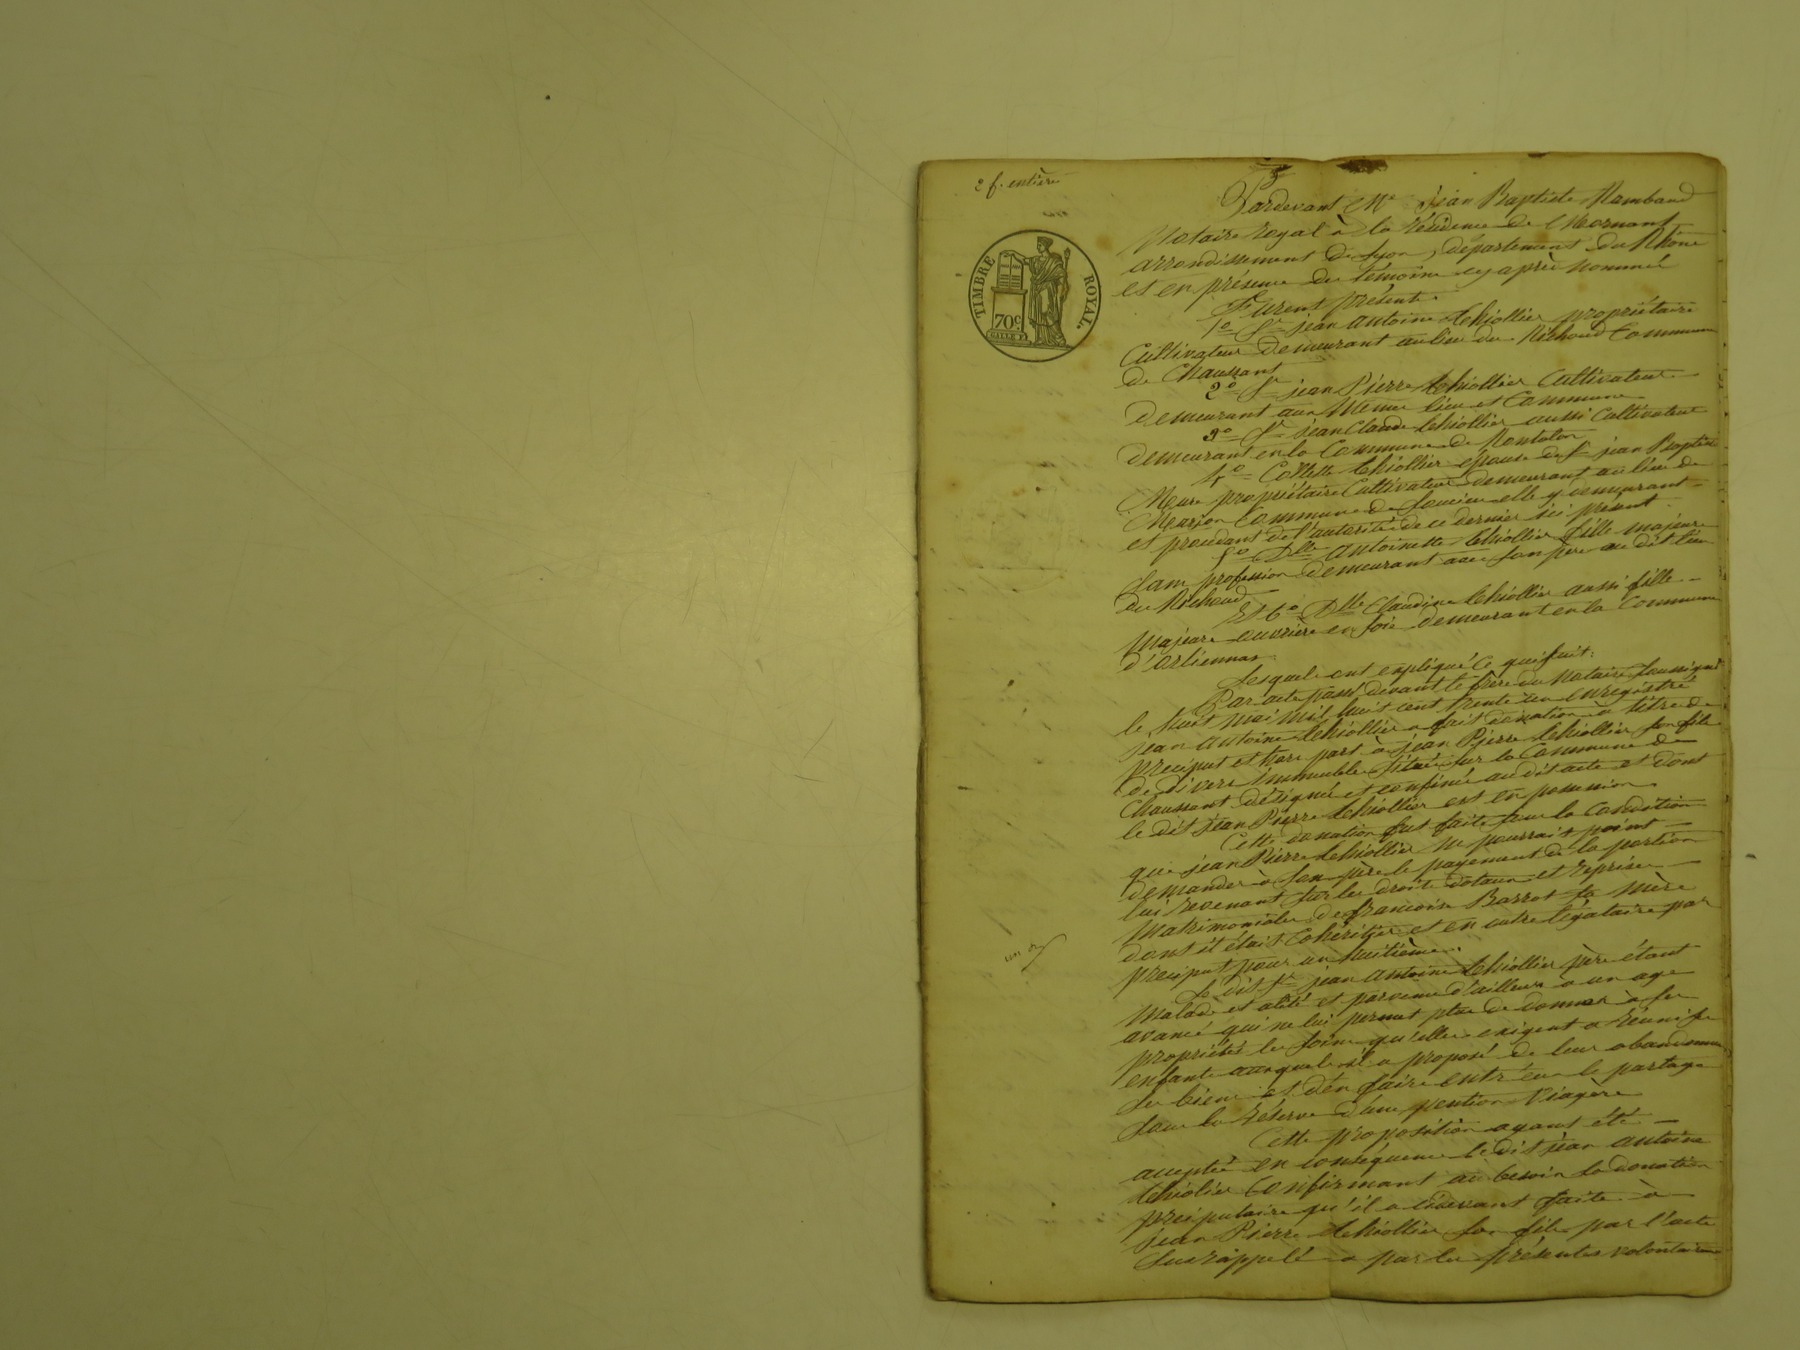 2 f. entière
TIMBRE ROYAL.
70c.
Pardevant Me Jean Baptiste Rambaud
Notaire royal à la résidence de Mornant
arrondissement de Lyon, département du Rhône
et en présence des témoins cy après nommés
Furent présents
1o Sr jean antoine Chiollier propriétaire
Cultivateur demeurant au lieu du Richoud Commune
de Chaussant
2o Sr jean Pierre Chiollier Cultivateur
demeurant aux Mêmes lieu et Commune
3o Sr jean Claude Chiollier aussi Cultivateur
demeurant en la Commune de Rontalon
4o Collette Chiollier épouse de Sr jean Baptiste
propriétaire Cultivateur demeurant au lieu de
Commune de Soucieu elle y demeurant
et procédant de l'autorité de ce dernier ici présent
5o Dlle Antoinette Chiollier fille majeure
sans profession demeurant avec son père au dit lieu
du Richoud
Et 6o Dlle Claudine Chiollier aussi fille
Majeure ouvrière en soie demeurant en la Commune
d'orliennas
Lesquels ont expliqué Ce qui suit:
Par acte passé devant le père du Notaire soussigné
le huit mai mil huit cent trente un enregistré
jean antoine Chiollier a fait donation à titre de
preciput et hors part à jean Pierre Chiollier son fils
de divers immeubles situés sur la Commune de
Chaussant désignés et confinés au dit acte et dont
le dit jean Pierre Chiollier est en possession
Cette donation fut faite sous la Condition
que jean Pierre Chiollier ne pourrait point
demander à son père le payement de la portion
lui revenant sur les droits dotaux et reprises
Matrimoniales de francoise Barrot sa mère
dont il était Cohéritier et en outre légataire par
preciput pour un huitième.
Le dit Sr jean antoine Chiollier père étant
Malade et alité et parvenu d'ailleurs à un age
avancé qui ne lui permet plus de donner à ses
propriétés les soins qu'elles exigent a réuni ses
enfants auxquels il a proposé de leur abandonner
ses biens et d'en faire entr'eux le partage
sous la réserve d'une pention viagère
Cette proposition ayant été
acceptée en conséquence le dit jean antoine
Chiolier Confirmant au besoin la donation
precipulaire qu'il a cidevant faite à
jean Pierre Chiollier son fils par l'acte
susrappelé a par les présentes volontairement